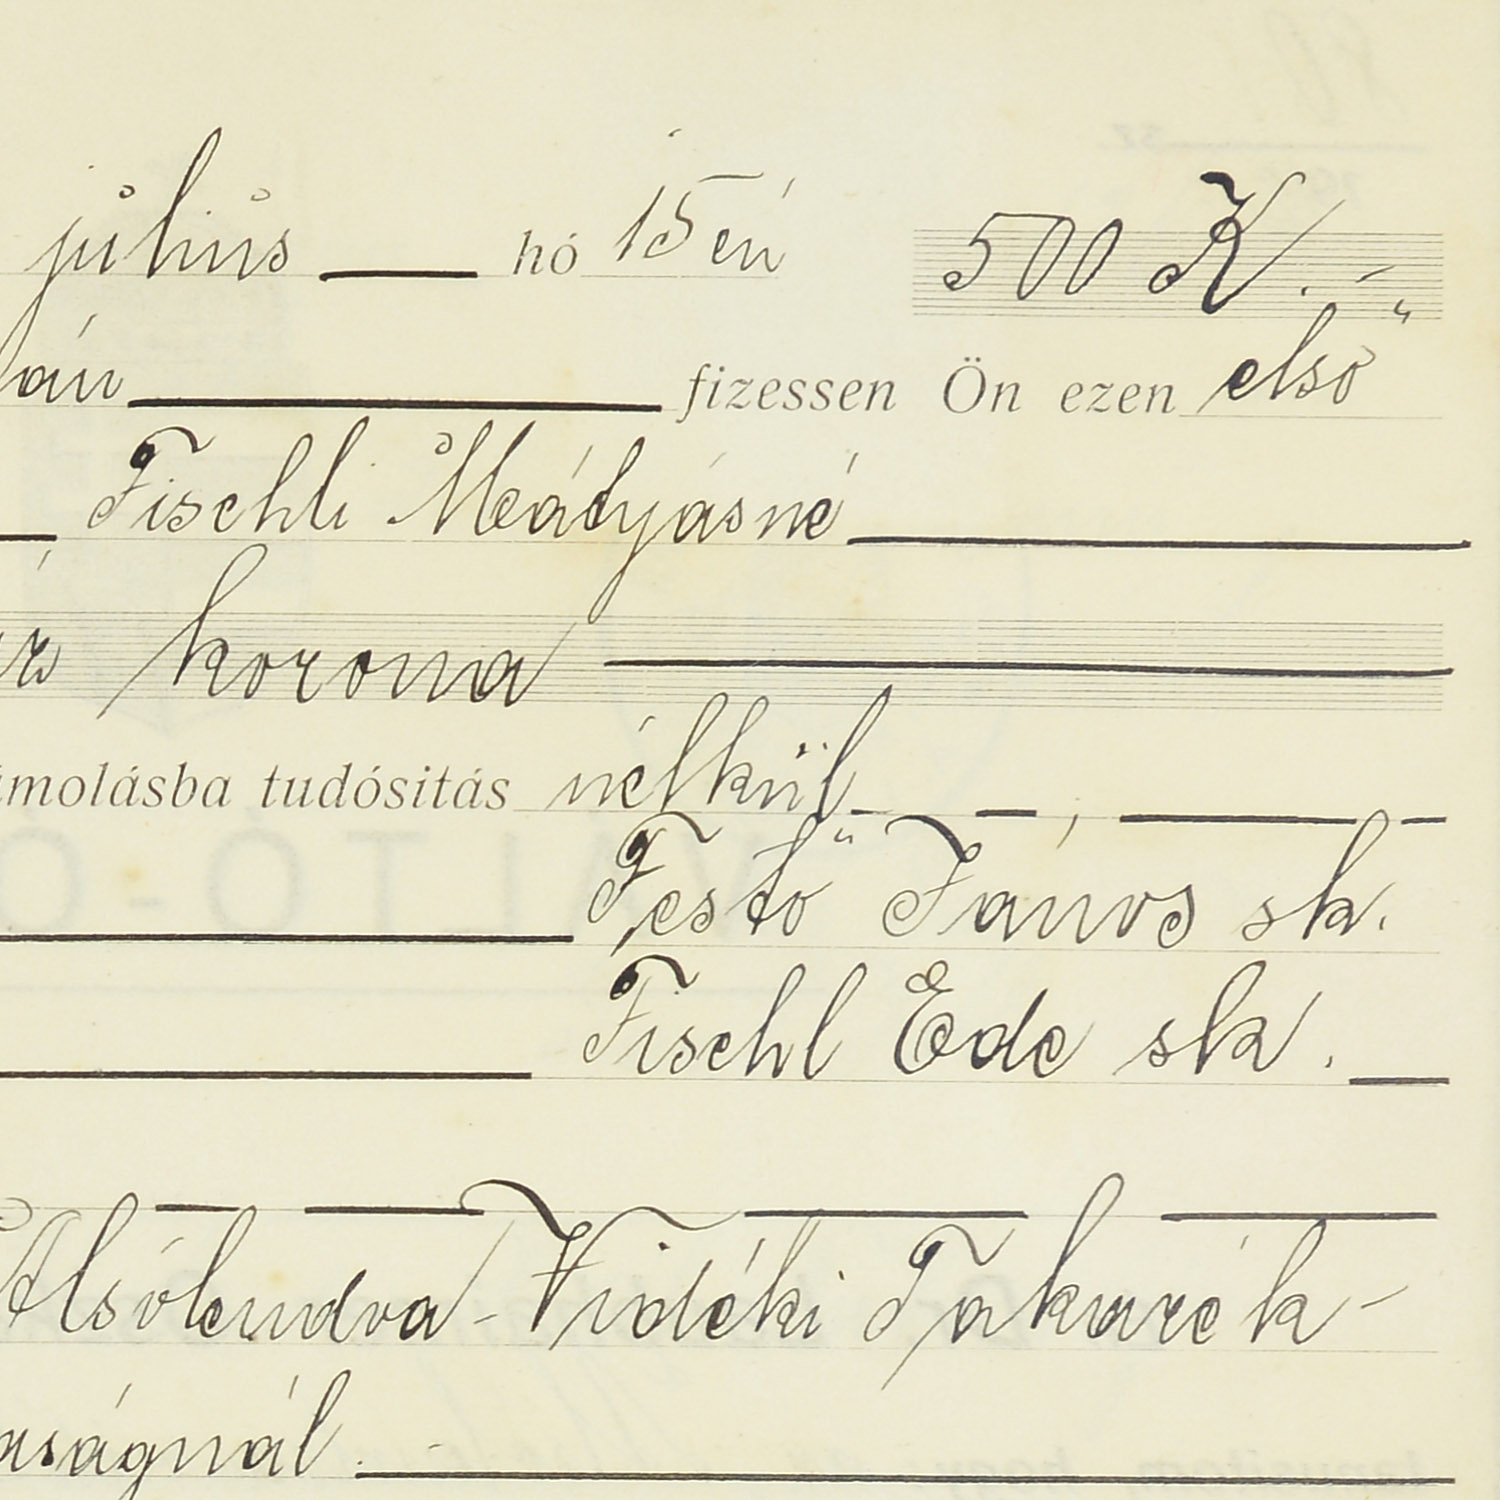 július hó 15 én 500 K.-
án fizessen Ön ezen első
Fischli Mátyásné
korona
ámolásba tudósitás nélkül
Festő János sk.
Fischl Ede sk.
Alsólendva-Vidéki Takarék-
aságnál.